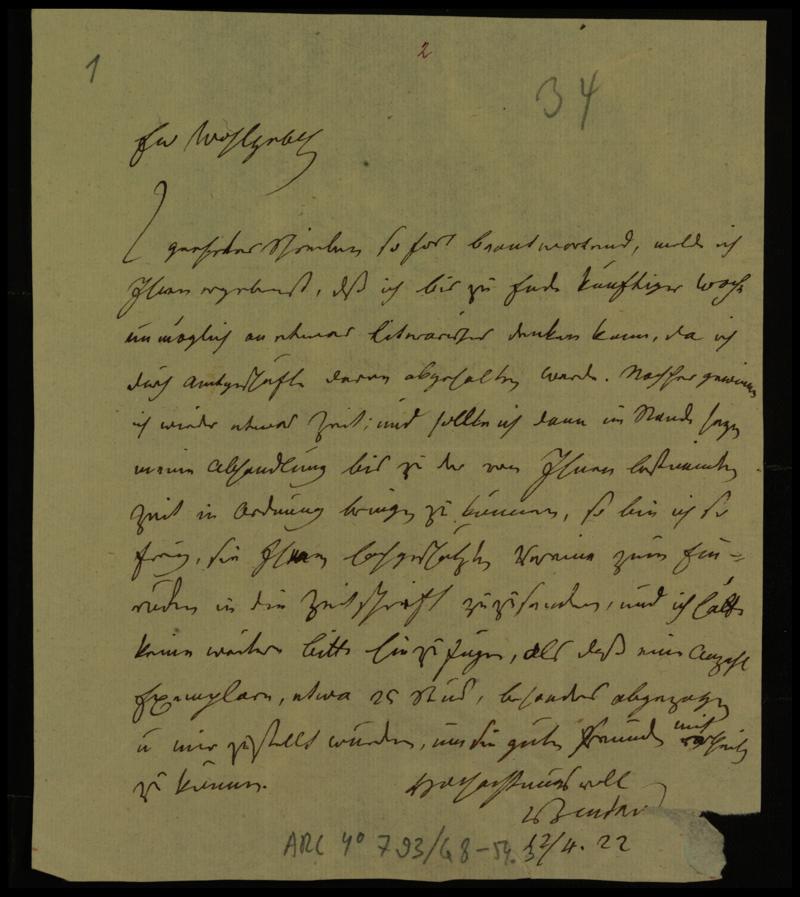 1
2
34
Ew Wohlgeb
geehrtes Schreiben sofort beantwortend, melde ich
Ihnen ergebenst, daß ich bis zu Ende künftiger Woche
unmöglich an etwas literarisches denken kann, da ich
durch Amtgeschäfte davon abgehalten werde. Nachher gewinne
ich wieder etwas Zeit; und sollte ich dann im Stande seyn
meine Abhandlung bis zu der von Ihnen bestimmten
Zeit in Ordnung bringen zu können, so bin ich so
frey, sie Ihrem hochgeschätzten Vereine zum Ein-
rücken in die Zeitschrift zuzusenden, und ich hätte
keine weitere Bitte hinzufügen, als daß eine Anzahl
Exemplare, etwa 25 Stück, besonders abgezogen
u mir zustellt würden, um sie guten Freunden mit
zu können.
Hochachtungsvoll
12/4. 22
ARC 4° 793/G8-54.3